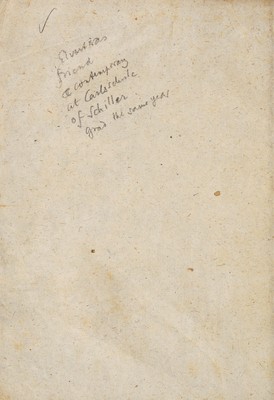 friend
& contemporary
at Carlsschule
of Schiller
grad the same year